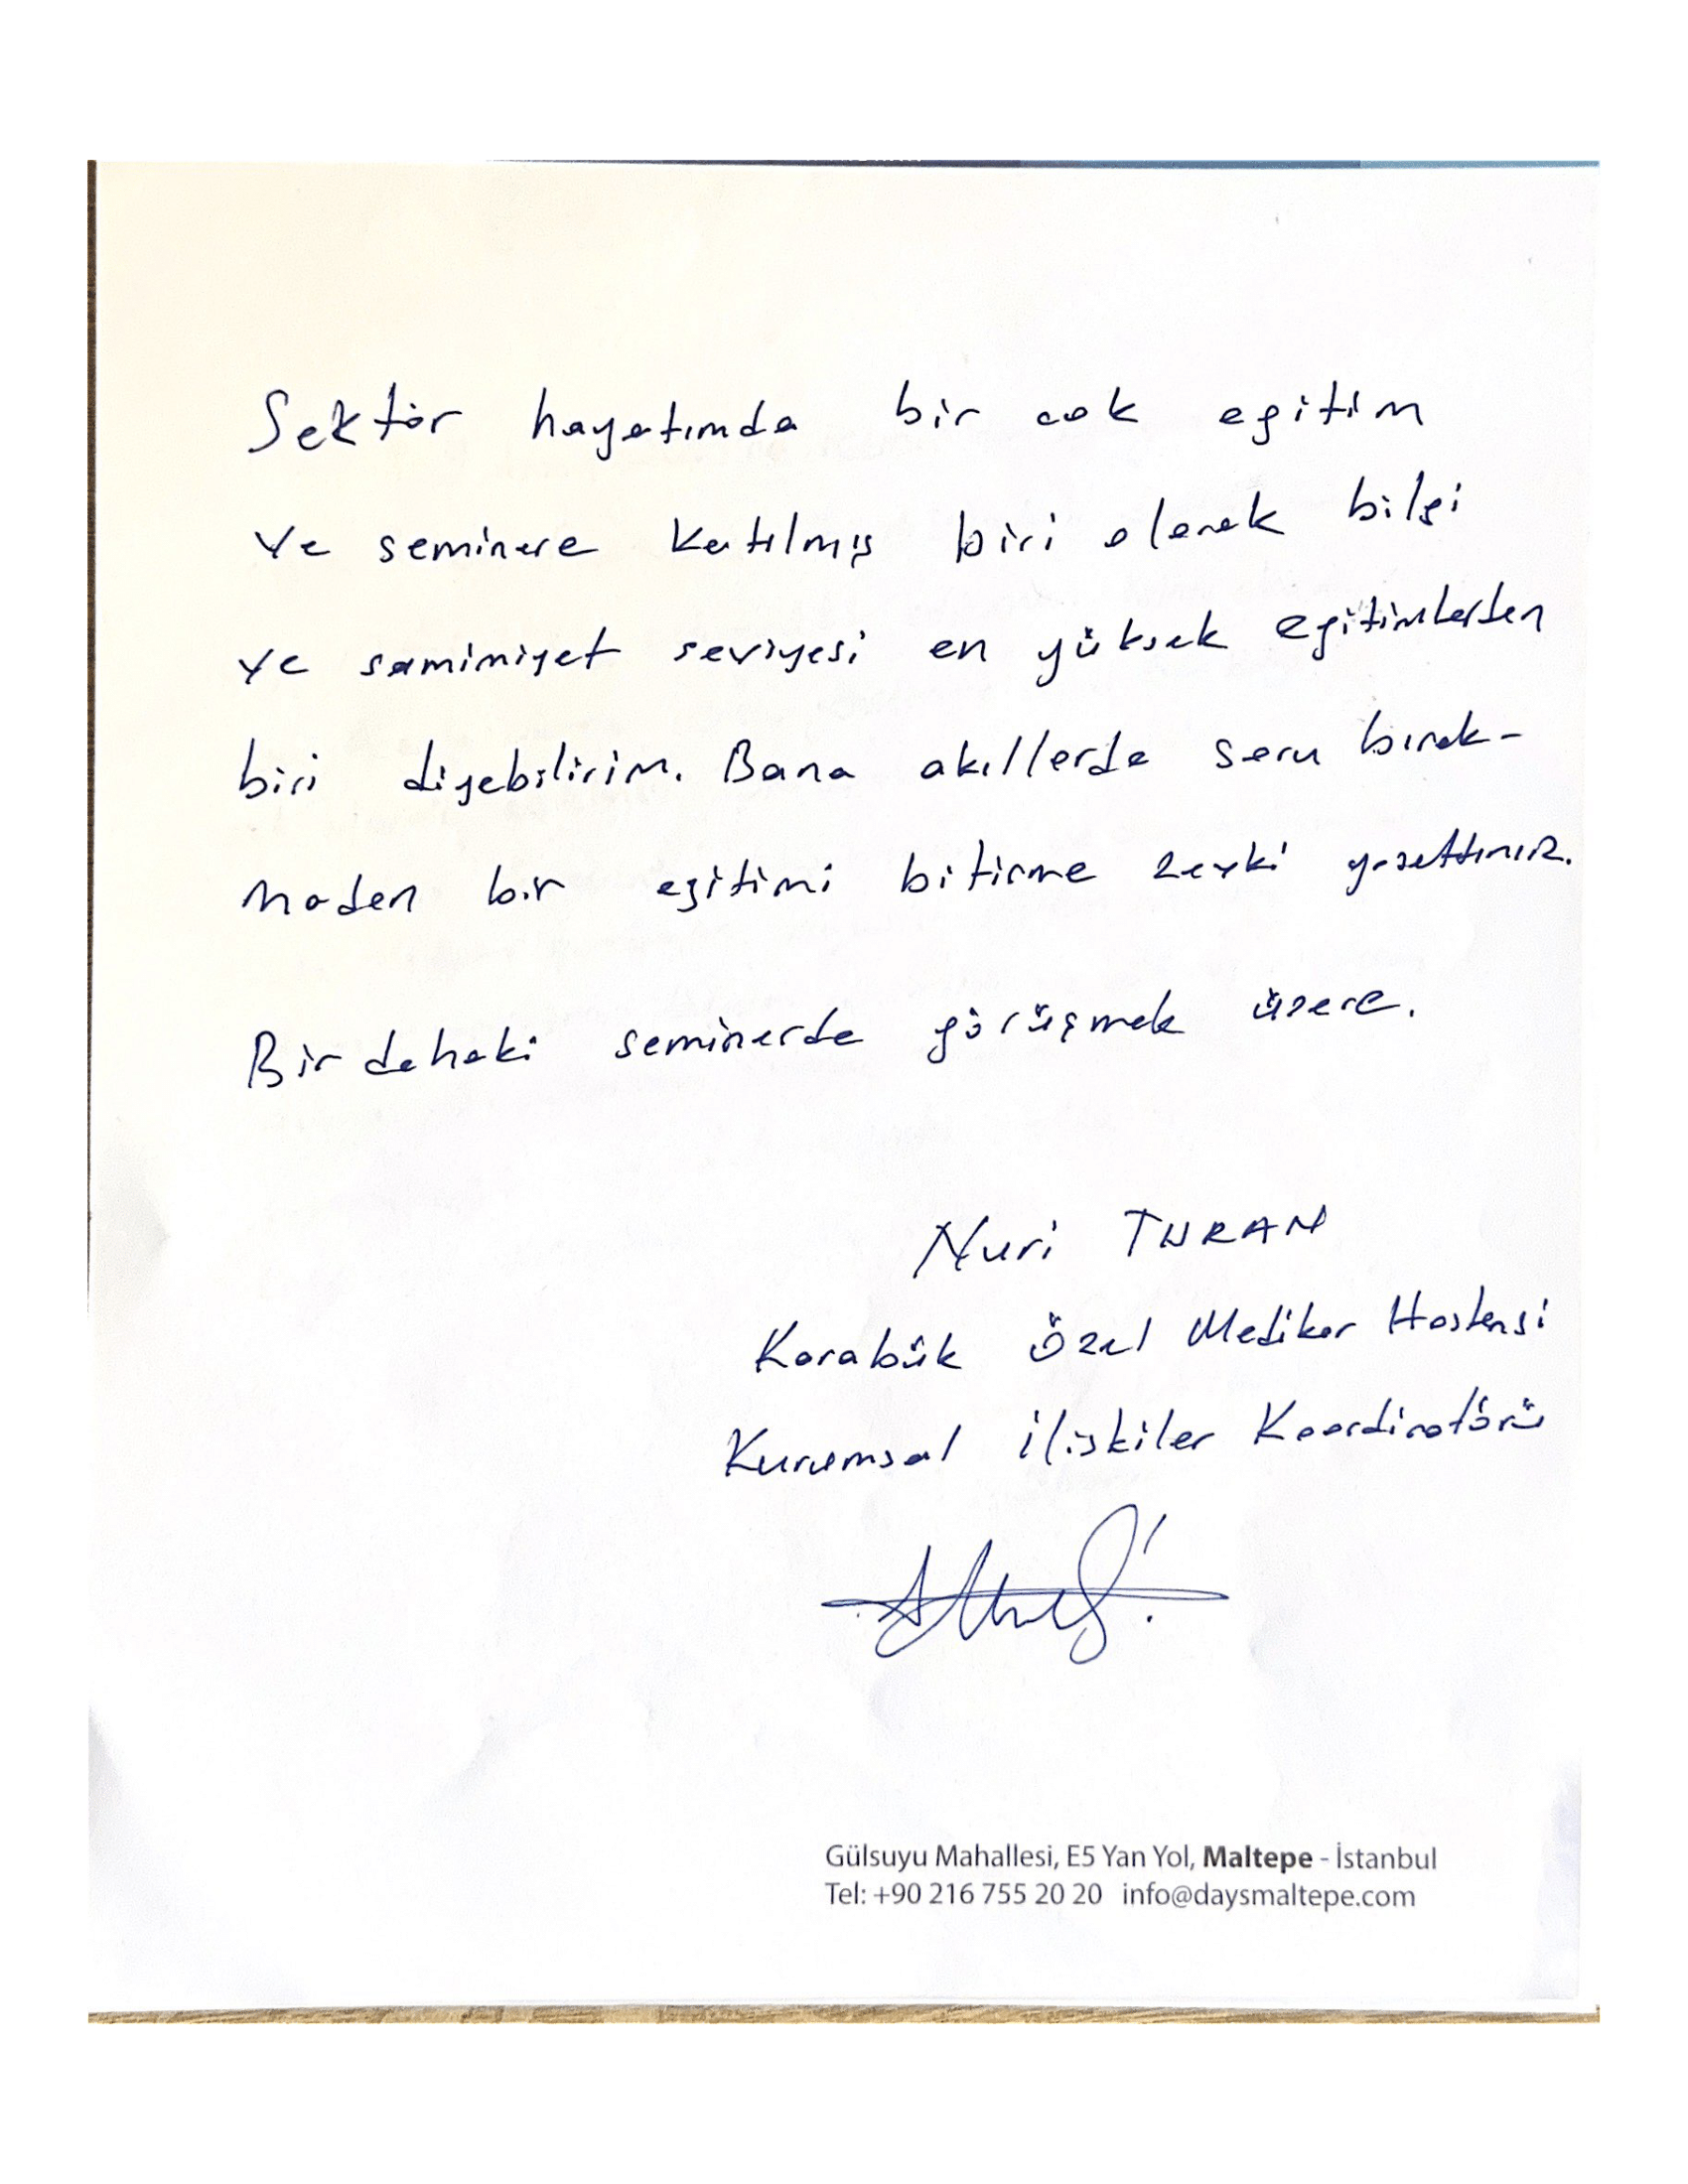 Sektör hayatımda bir cok egitim
ve seminere katılmış biri olarak bilgi
ve samimiyet seviyesi en yüksek egitimlerden
biri diyebilirim. Bana akıllarda soru bırak-
madan bir egitimi bitirme zevki yasattınız.
Bir dahaki seminerde görüşmek üzere.
Nuri TURAN
Karabük Özel Medikar Hastansi
Kurumsal ilişkiler Koordinatörü
Gülsuyu Mahallesi, E5 Yan Yol, Maltepe - İstanbul
Tel: +90 216 755 20 20 info@daysmaltepe.com